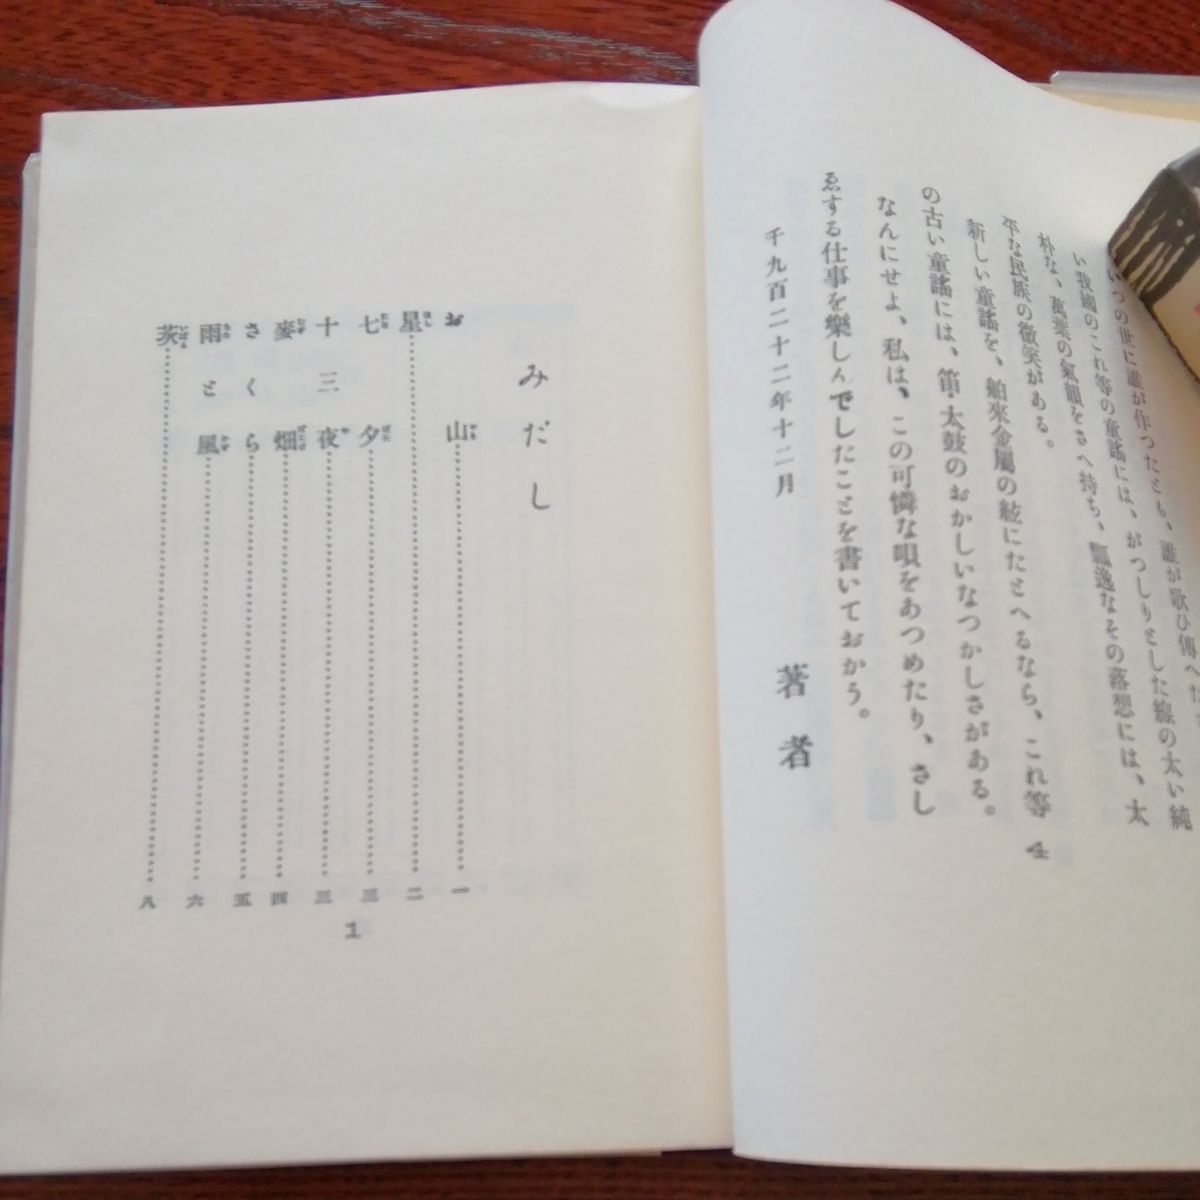 いつの世に誰が作つたとも、誰が歌ひ傳へた
い我國のこれ等の童謠には、がつしりとした線の太い純
朴な、萬葉の氣韻をさへ持ち、飄逸なその落想には、太
平な民族の微笑がある。
新しい童謠を、舶來金屬の絃にたとへるなら、これ等
の古い童謠には、笛・太鼓のおかしいなつかしさがある。
なんにせよ、私は、この可憐な唄をあつめたり、さし
ゑする仕事を樂しんでしたことを書いておかう。
千九百二十二年十二月
著者
4
みだし
お山やま……一
星ほし……二
七夕たなばた……三
十三夜や……三
麥畑むぎばたけ……四
さくら……五
雨あめと風かぜ……六
茨いばら……八
1